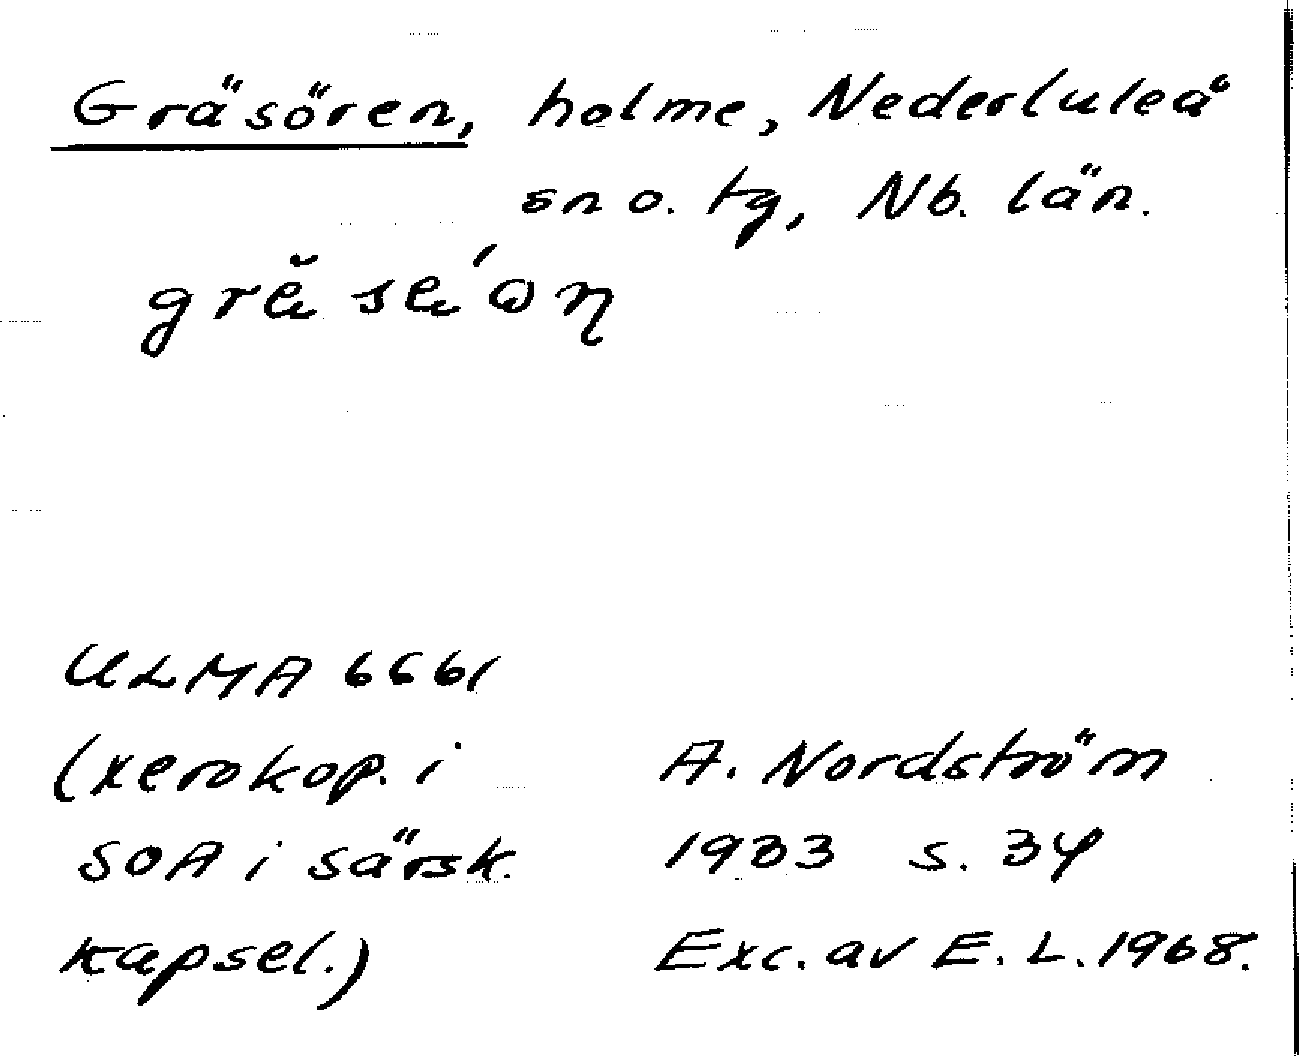 Gräsören, holme, Nederluleå
sn o. tg, Nb. län.
ULMA 6661
(xerokop. i
SOA i särsk.
kapsel.)
A. Nordström
1933 s. 34
Exc. av E. L. 1968.